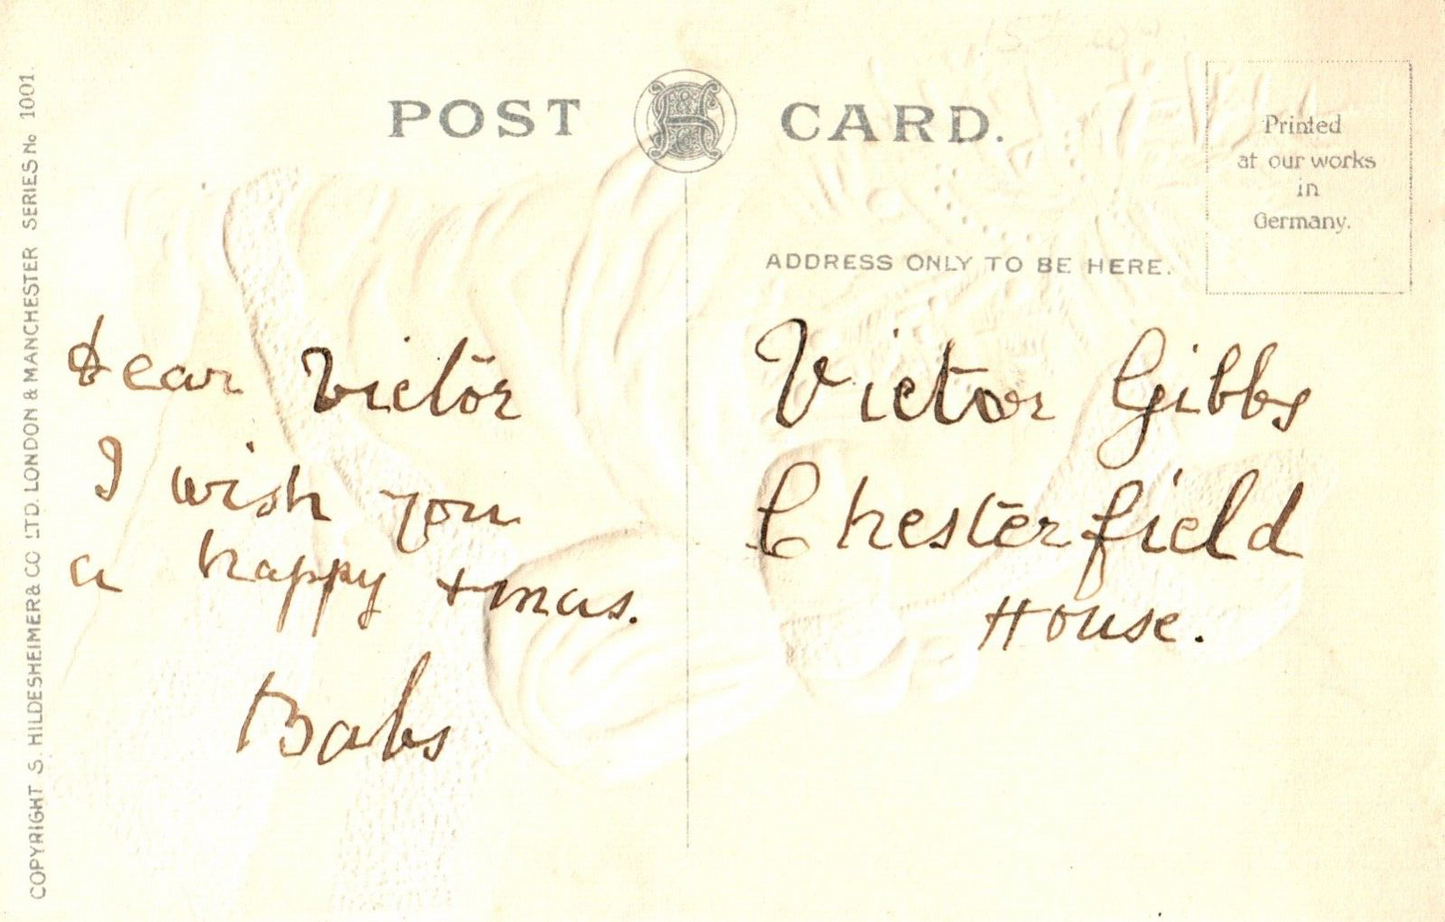 POST CARD.
Printed
at our works
in
Germany.
ADDRESS ONLY TO BE HERE.
Dear Victor
I wish you
a happy +mas.
Babs
Victor Gibbs
Chesterfield
House.
COPYRIGHT S. HILDESHEIMER & CO LTD. LONDON & MANCHESTER SERIES No 1001.